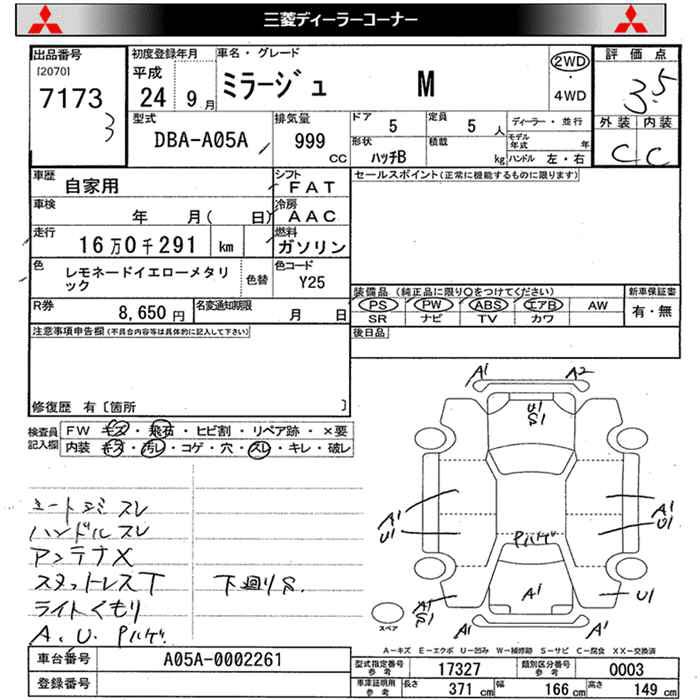 三菱ディーラーコーナー
出品番号 初度登録年月 車名・グレード 評価点
[2070] 平成 ミラージュ M 2WD ・ 4WD 3.5
7173 24 年 9 月
3
型式 DBA-A05A 排気量 999 CC
ドア 5 定員 5 人 ディーラー・並行
形状 ハッチB 積載 kg モデル年式 年
ハンドル 左・右
外装 内装
C C
車歴 自家用 シフト FAT
セールスポイント(正常に機能するものに限ります)
車検 年 月( 日) 冷房 AAC
走行 16万0千291 km 燃料 ガソリン
色 レモネードイエローメタリック 色替 色コード Y25
R券 8,650円 名変通知期限 月 日
装備品(純正品に限り○をつけてください) 新車保証書
PS PW ABS エアB AW 有・無
SR ナビ TV カワ
注意事項申告欄(不具合内容等は具体的に記入して下さい) 後日品
修復歴 有[箇所 ]
検査員記入欄
FW キズ・飛石・ヒビ割・リペア跡・×要
内装 キズ・汚レ・コゲ・穴・スレ・キレ・破レ
A1 A2
U1
S1
A1
U1
A1
U1
Pハゲ
A1
A1
S1
U1
スペア
シートゴミ スレ
ハンドル スレ
アンテナX
スタットレスT 下廻りS.
ライトくもり
A. U. Pハゲ.
A-キズ E-エクボ U-凹み W-補修跡 S-サビ C-腐食 XX-交換済
車台番号 A05A-0002261
登録番号
型式指定番号 参考 17327 類別区分番号 参考 0003
車庫証明用 参考 長さ 371 cm 幅 166 cm 高さ 149 cm